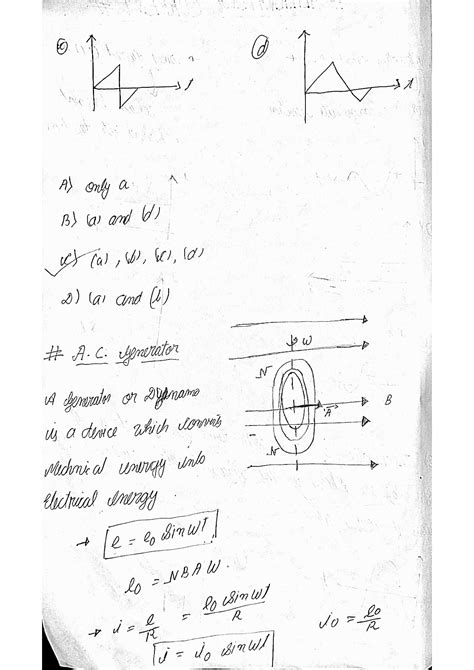 (c)
t
(d)
t
A) only a
B) (a) and (d)
C) (a), (b), (c), (d)
D) (a) and (b)
# A.C. Generator
A Generator or Dynamo
is a device which converts
Mechnical energy into
Electrical energy.
ω
N
B
A
N
→ e = e₀ sin ωt
e₀ = NBAω.
→ i = e/R = e₀ sin ωt/R
i₀ = e₀/R
i = i₀ sin ωt